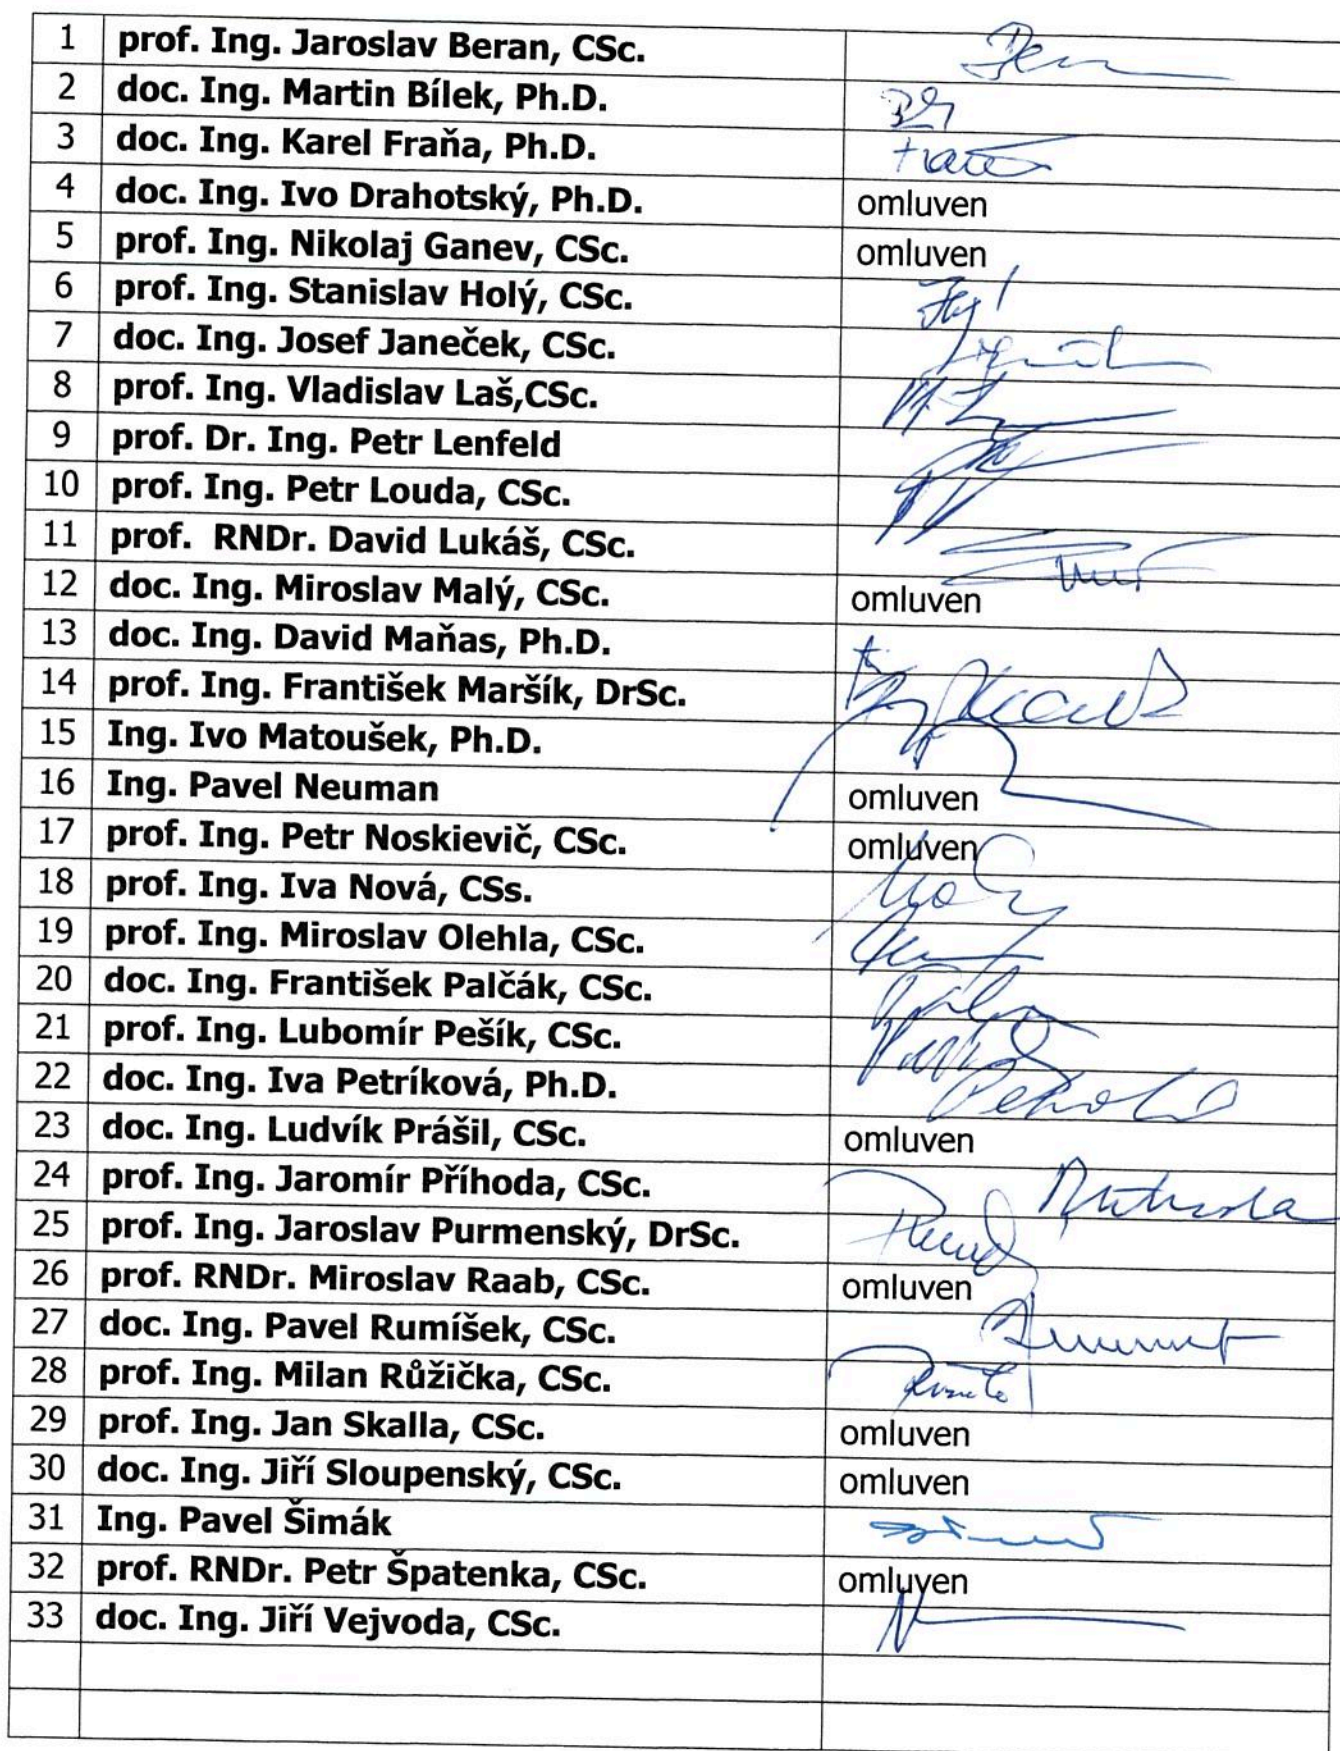 1 prof. Ing. Jaroslav Beran, CSc.
2 doc. Ing. Martin Bílek, Ph.D.
3 doc. Ing. Karel Fraňa, Ph.D.
4 doc. Ing. Ivo Drahotský, Ph.D. omluven
5 prof. Ing. Nikolaj Ganev, CSc. omluven
6 prof. Ing. Stanislav Holý, CSc.
7 doc. Ing. Josef Janeček, CSc.
8 prof. Ing. Vladislav Laš,CSc.
9 prof. Dr. Ing. Petr Lenfeld
10 prof. Ing. Petr Louda, CSc.
11 prof. RNDr. David Lukáš, CSc.
12 doc. Ing. Miroslav Malý, CSc. omluven
13 doc. Ing. David Maňas, Ph.D.
14 prof. Ing. František Maršík, DrSc.
15 Ing. Ivo Matoušek, Ph.D.
16 Ing. Pavel Neuman omluven
17 prof. Ing. Petr Noskievič, CSc. omluven
18 prof. Ing. Iva Nová, CSs.
19 prof. Ing. Miroslav Olehla, CSc.
20 doc. Ing. František Palčák, CSc.
21 prof. Ing. Lubomír Pešík, CSc.
22 doc. Ing. Iva Petríková, Ph.D.
23 doc. Ing. Ludvík Prášil, CSc. omluven
24 prof. Ing. Jaromír Příhoda, CSc.
25 prof. Ing. Jaroslav Purmenský, DrSc.
26 prof. RNDr. Miroslav Raab, CSc. omluven
27 doc. Ing. Pavel Rumíšek, CSc.
28 prof. Ing. Milan Růžička, CSc.
29 prof. Ing. Jan Skalla, CSc. omluven
30 doc. Ing. Jiří Sloupenský, CSc. omluven
31 Ing. Pavel Šimák
32 prof. RNDr. Petr Špatenka, CSc. omluven
33 doc. Ing. Jiří Vejvoda, CSc.